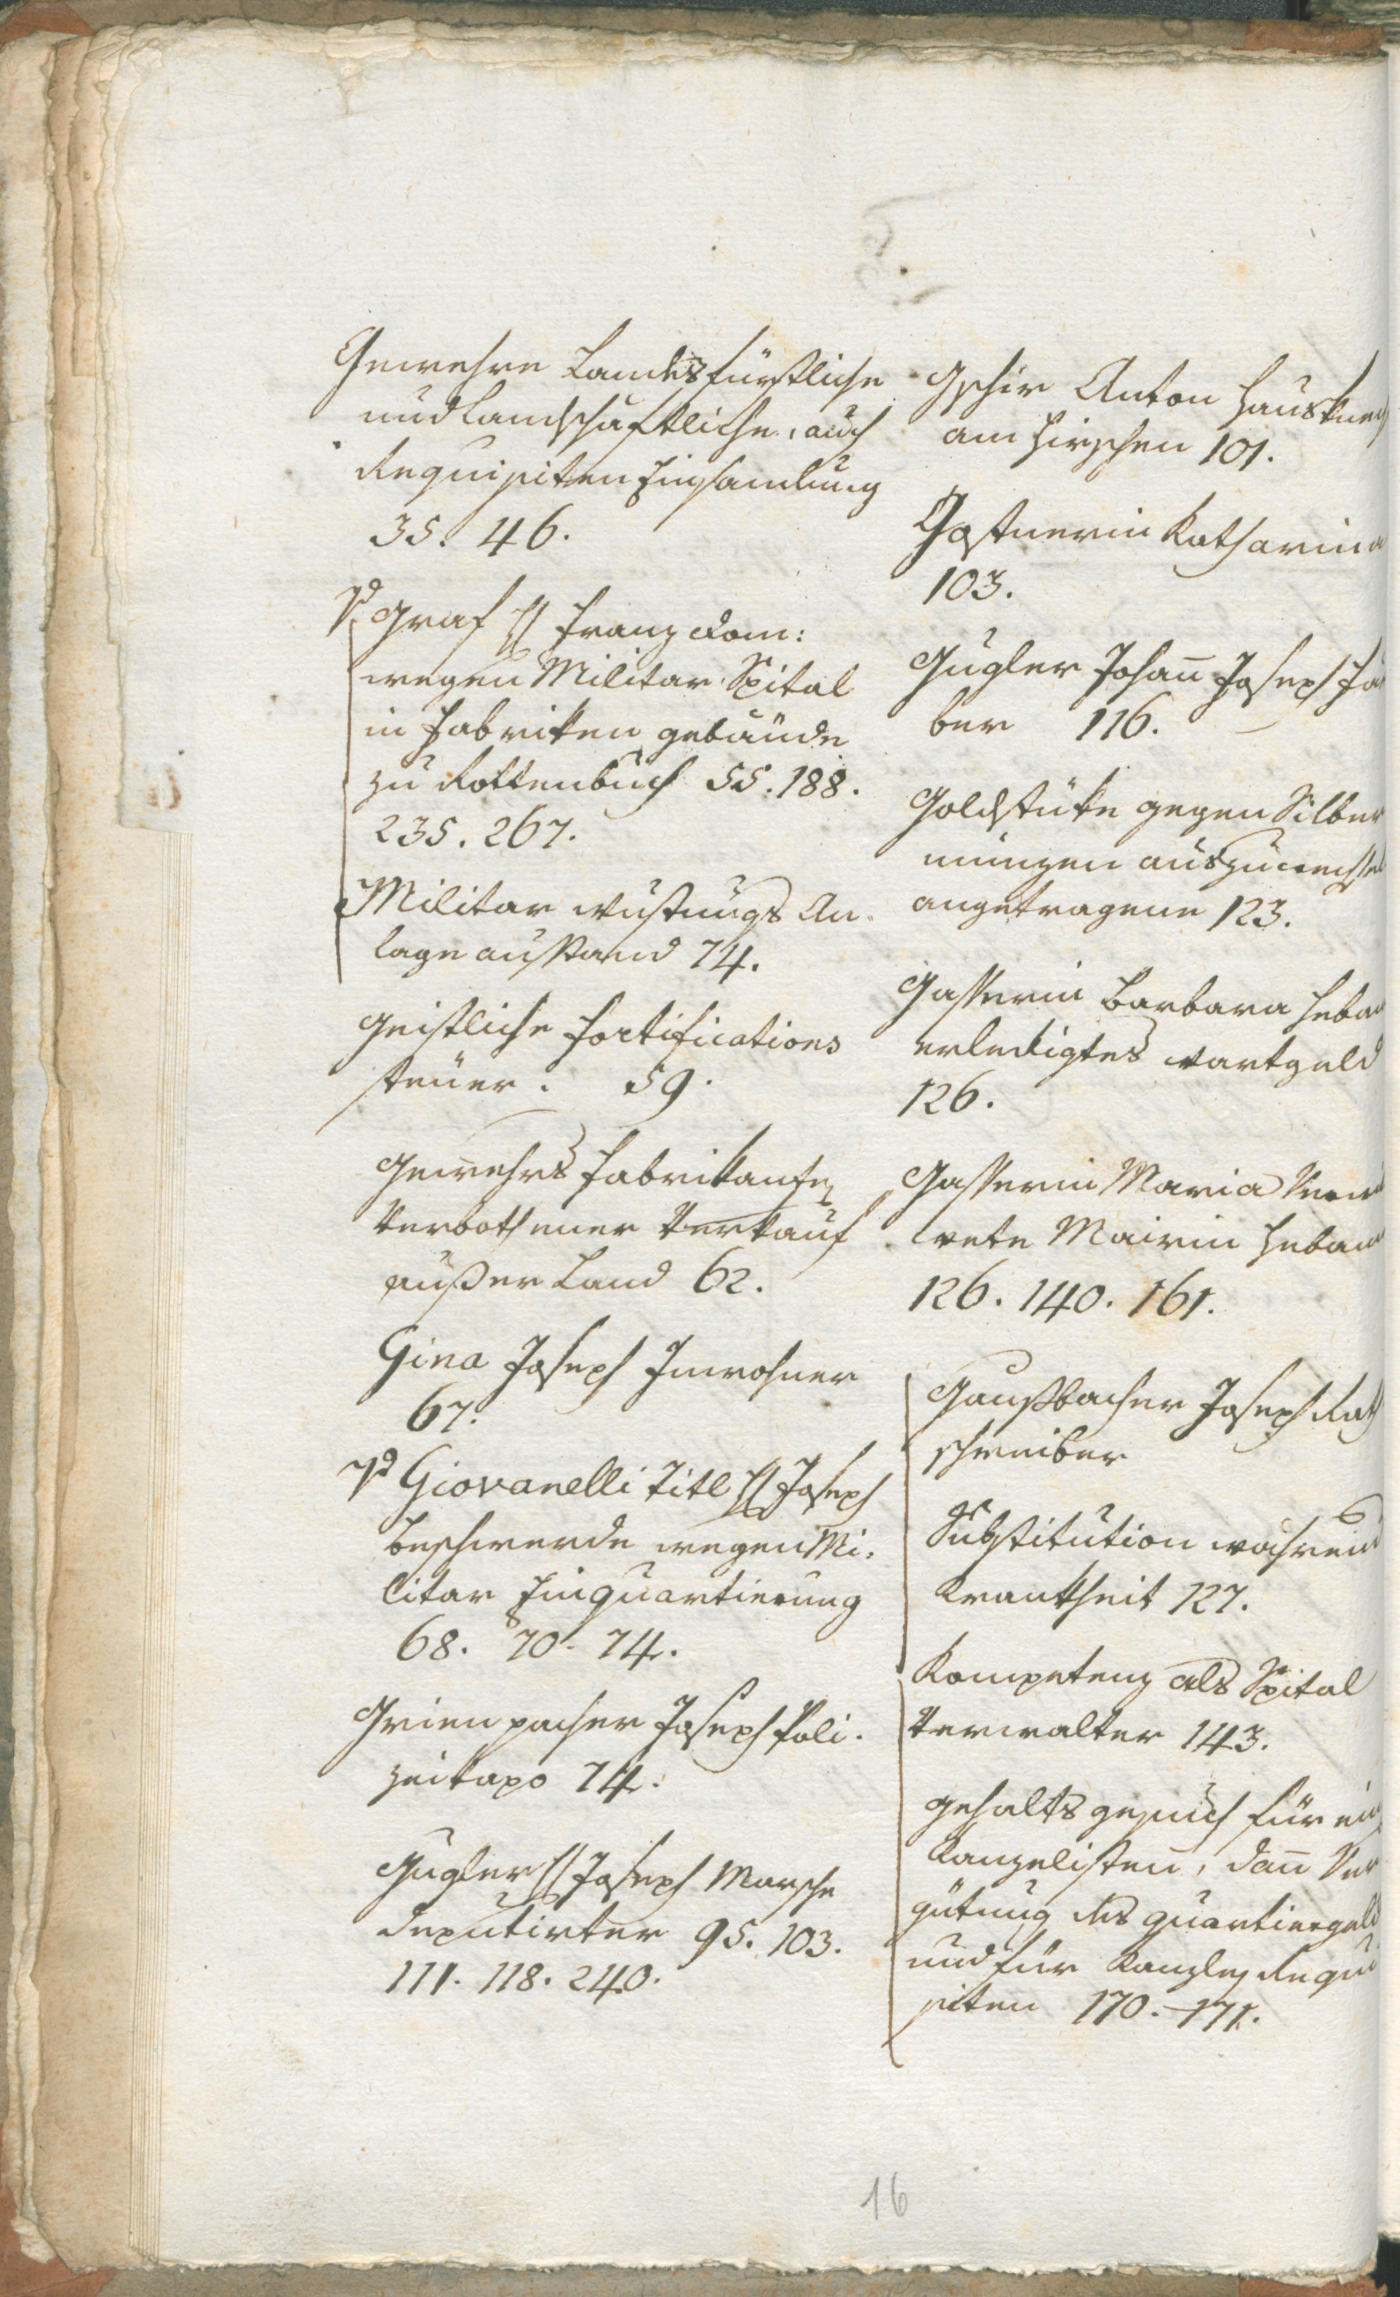 Gewehre Landesfürstliche
und Landschaftliche, auch
Requisiten Einsamlung
35. 46.
Graf H Franz Dom:
wegen Militar Spital
in Fabriken gebäude
zu Rottenbuch 55. 188.
235. 267.
Militar Rüstungs An-
lage ausstand 74.
Geistliche Fortifications
steuer. 59.
Gewehrs Fabrikanten
verbothener Verkauf
ausser Land 62.
Gina Joseph Inwohner
67.
Giovanelli Titl H Joseph
Beschwerde wegen Mi-
litar Einquartierung
68. 70. 74.
Grienpacher Joseph Poli-
zeikapo 74.
Gugler H Joseph Marsche
deputirter 95. 103.
111. 118. 240.
Gschir Anton Hausknech
am Hirschen 101.
Gostnerin Katharina
103.
Gugler Johann Joseph
ber 116.
Goldstüke gegen Silber
münzen auszuwechseln
angetragene 123.
Gasserin Barbara Hebam
erledigtes Wartgeld
126.
Gasserin Maria
wete Mairin Hebam
126. 140. 161.
Gaußbacher Joseph Rath
schreiber
Substitution während
Krankheit 127.
Kompetenz als Spital
Verwalter 143.
Gehalts gesuch für ein
Kanzelisten, dann Ver
gütung des quartiergeld
und für Kanzley Requi
siten 170.-171.
16